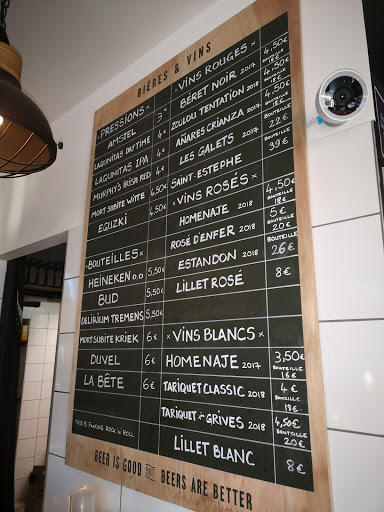 BIÈRES & VINS
× PRESSIONS ×
AMSTEL 3€
LAGUNITAS DAYTIME 4€
LAGUNITAS IPA 4€
MURPHY'S IRISH RED 4€
MORT SUBITE WITTE 4,50€
EGUZKI 4,50€
× BOUTEILLES ×
HEINEKEN 0.0 5,50€
BUD 5,50€
DELIRIUM TREMENS 5,50€
MORT SUBITE KRIEK 6€
DUVEL 6€
LA BÊTE 6€
THIS IS FUCKING ROCK'N'ROLL
× VINS ROUGES ×
BÉRET NOIR 2017 4,50€
ZOULOU TENTATION 2018 4,50€
AÑARES CRIANZA 2017 4,50€
LES GALETS 2017 BOUTEILLE 22€
SAINT-ESTEPHE BOUTEILLE 39€
× VINS ROSÉS ×
HOMENAJE 2018 4,50€ BOUTEILLE 18€
ROSÉ D'ENFER 2018 5€ BOUTEILLE 20€
ESTANDON 2018 BOUTEILLE 26€
LILLET ROSÉ 8€
× VINS BLANCS ×
HOMENAJE 2017 3,50€ BOUTEILLE 16€
TARIQUET CLASSIC 2018 4€ BOUTEILLE 18€
TARIQUET 1ères GRIVES 2018 4,50€ BOUTEILLE 20€
LILLET BLANC 8€
BEER IS GOOD BEERS ARE BETTER